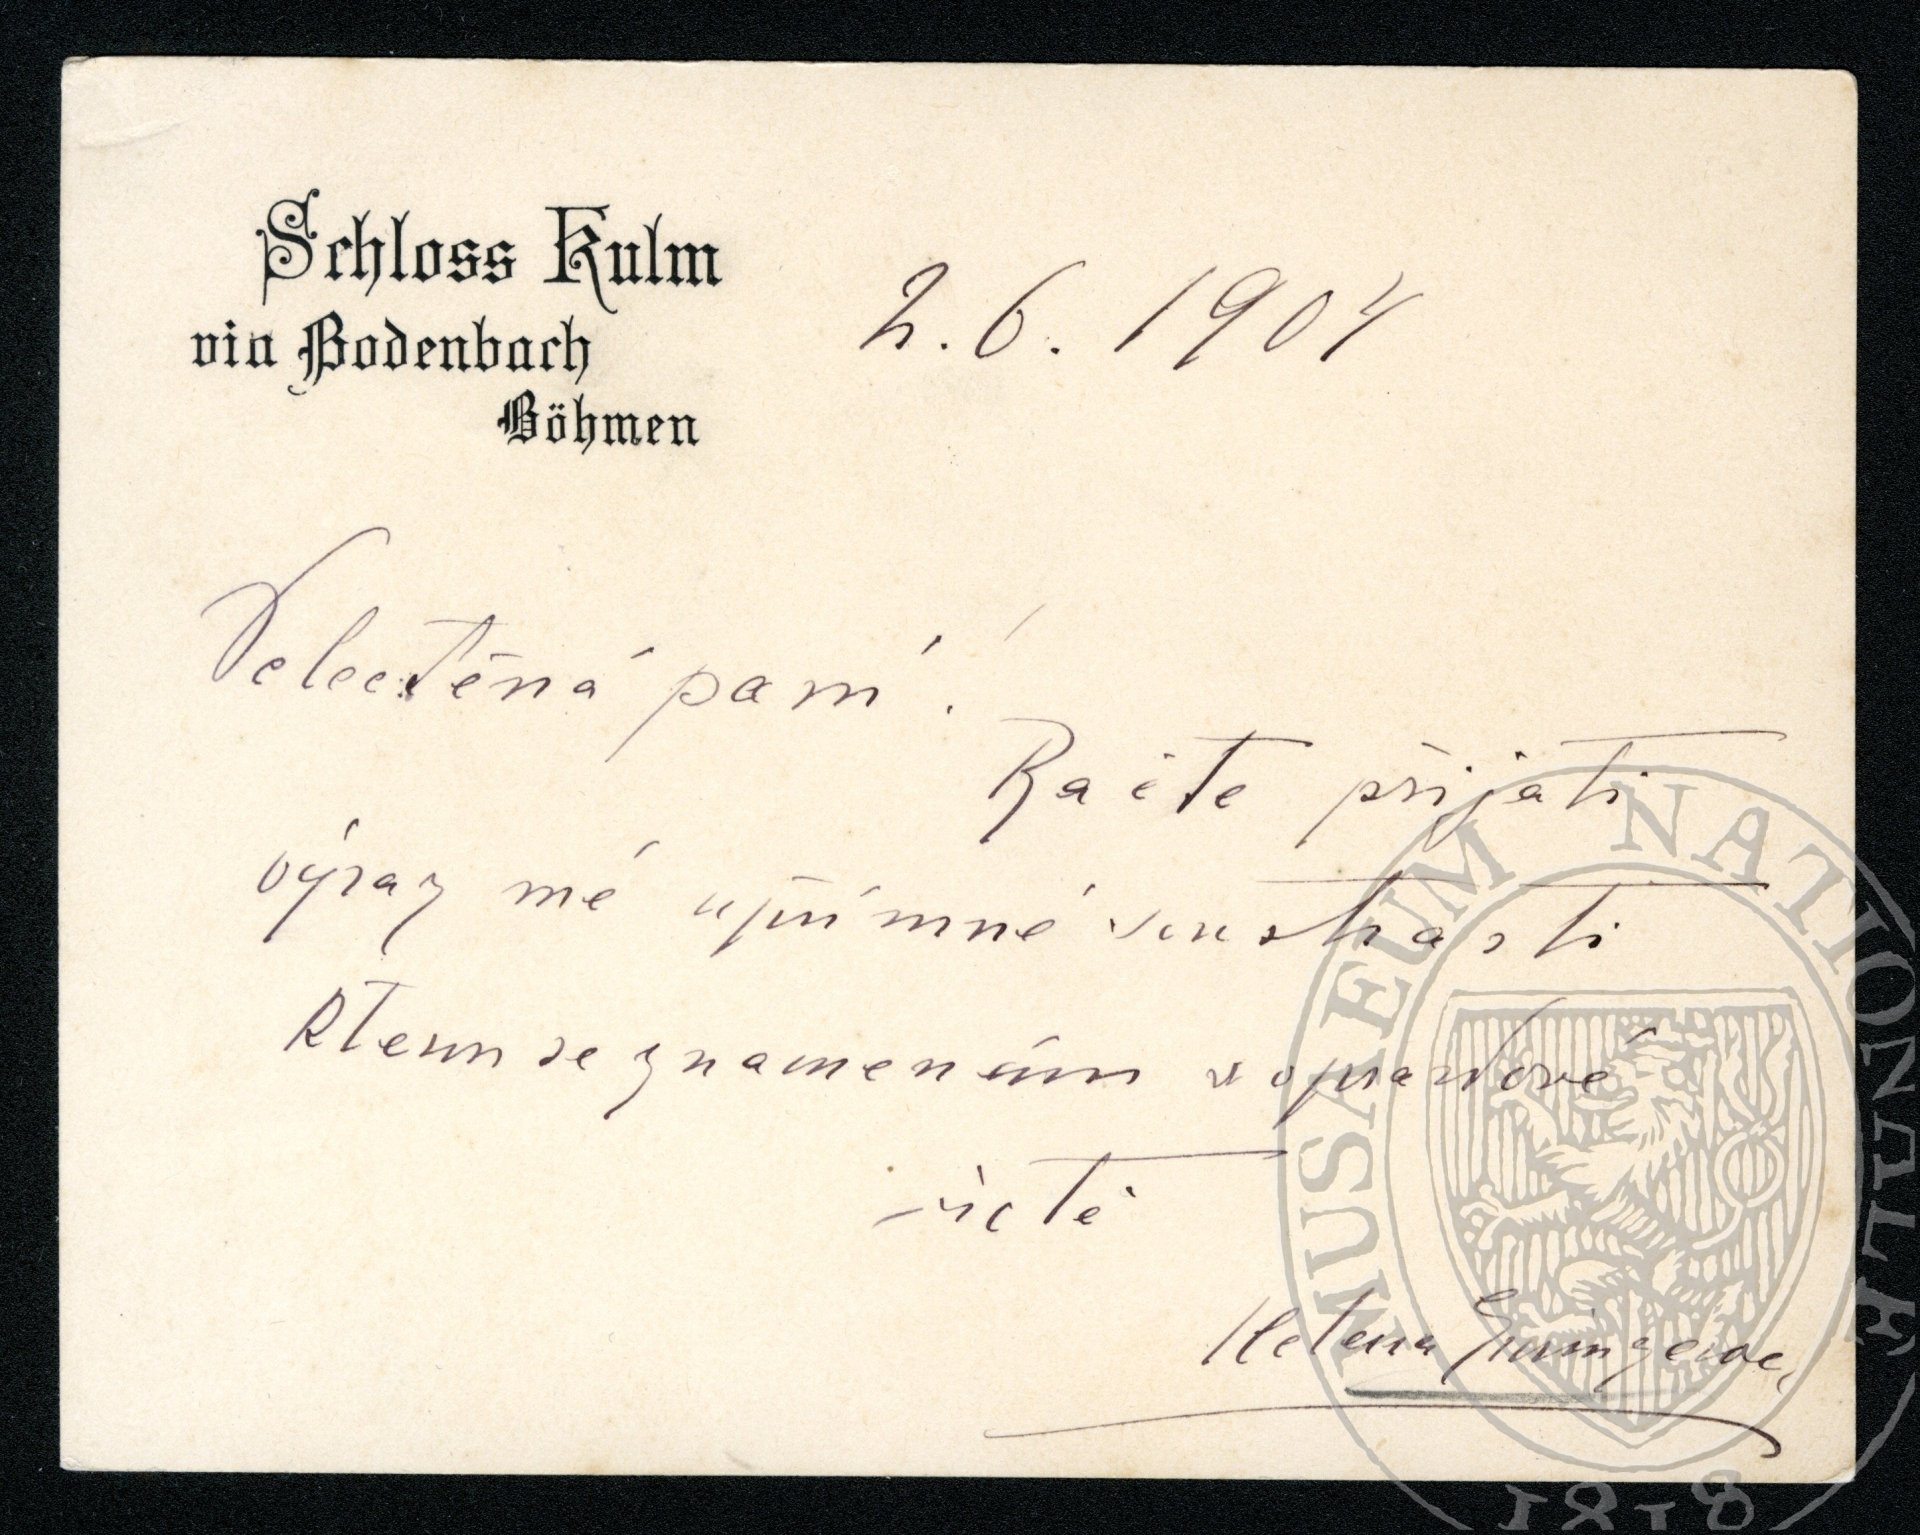 Schloss Kulm
via Bodenbach
Böhmen
2. 6. 1904
Velectěná paní!
Račte přijati
výraz mé upřímné soustrasti
kterou se znamenám v opravdové
úctě
Helena
MUSAEUM NATIONALE
1818